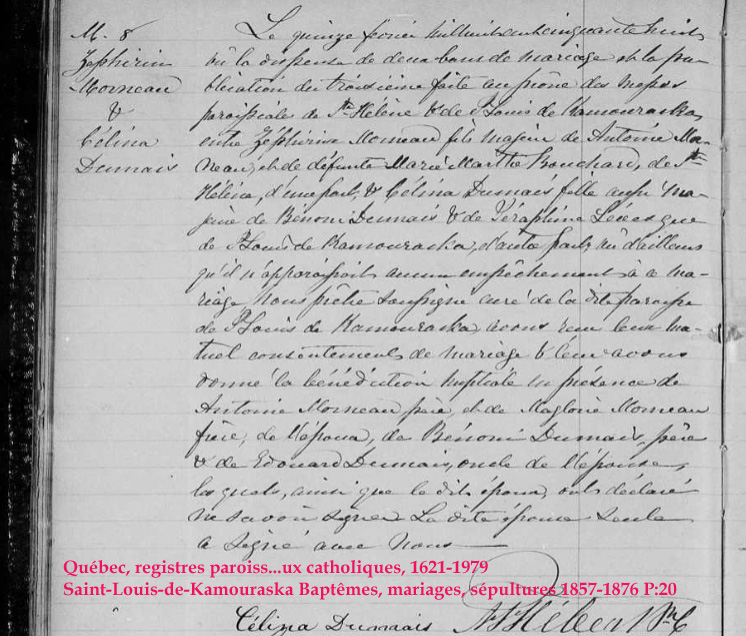 M. 8
Zéphirin
Morneau
&
Célina
Dumais
Le quinze février mil huit cent cinquante huit
vû la dispense de deux bans de mariage et la pu-
blication du troisième faite au prône des messes
paroissiales de Ste Hélène & de St Louis de Kamouraska,
entre Zéphirin Morneau fils majeur de Antoine Mor-
neau, et de défunte Marie Marthe Bouchard, de Ste
Hélène, d'une part, & Célina Dumais fille aussi ma-
jeure de Bénoni Dumais & de Séraphine Lévesque
de St Louis de Kamouraska, d'autre part, vu d'ailleurs
qu'il n'apparaissait aucun empêchement à ce ma-
riage Nous prêtre soussigné curé de la dite paroisse
de St Louis de Kamouraska, avons reçu leur mu-
tuel consentement de mariage & leur avons
donné la bénédiction nuptiale en présence de
Antoine Morneau père, et de Magloire Morneau
frère, de l'époux, de Bénoni Dumais, père
& de Edouard Dumais, oncle de l'épouse,
lesquels, ainsi que le dit époux, ont déclaré
ne savoir signer La dite épouse seule
a signé avec nous
Québec, registres paroiss...ux catholiques, 1621-1979
Saint-Louis-de-Kamouraska Baptêmes, mariages, sépultures 1857-1876 P:20
Célina Dumais